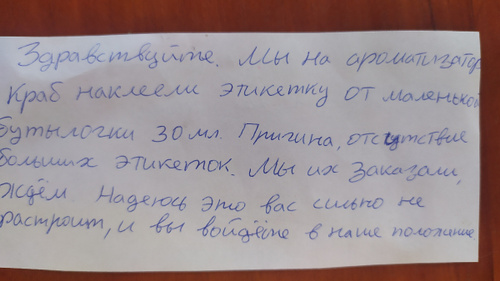 Здравствуйте. Мы на ароматизатор
Краб наклеели этикетку от маленькой
бутылочки 30 мл. Причина, отсутствие
больших этикеток. Мы их заказали,
ждём. Надеюсь это вас сильно не
растроит, и вы войдёте в наше положение.